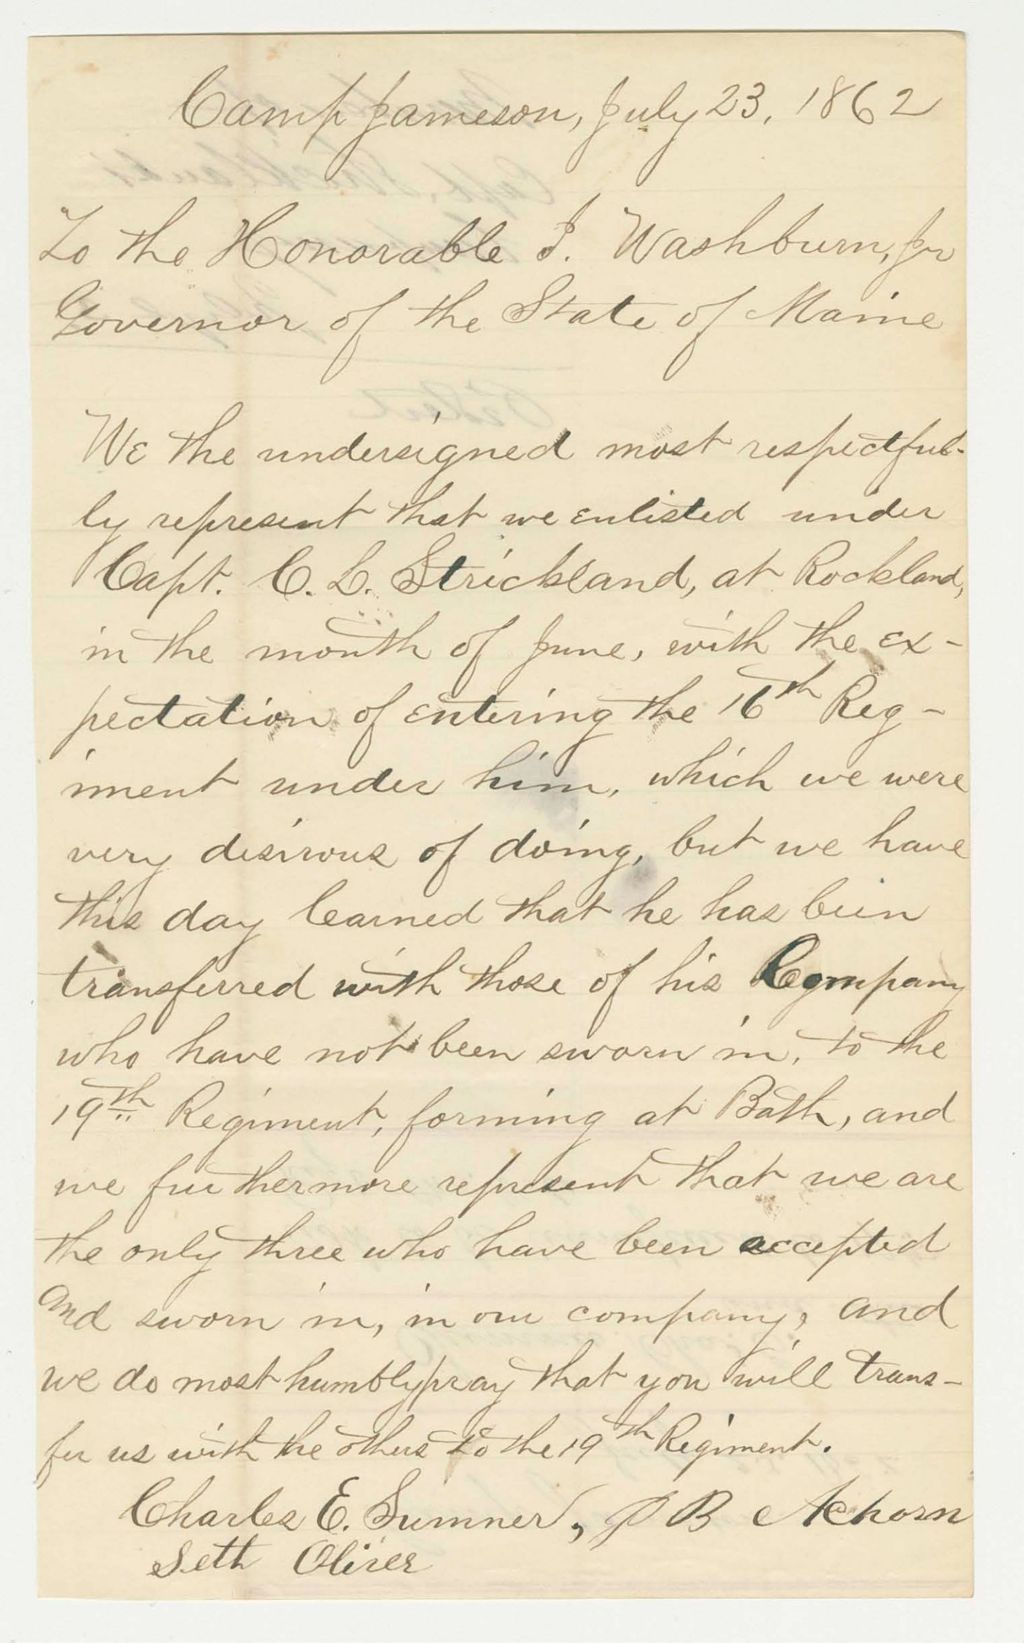 Camp Jameson, July 23, 1862
To the Honorable I. Washburn, Jr
Governor of the State of Maine
We the undersigned most respectful-
ly represent that we enlisted under
Capt. C. L. Strickland, at Rockland,
in the month of June, with the ex-
pectation of entering the 16th Reg-
iment under him, which we were
very desirous of doing, but we have
this day learned that he has been
transferred with those of his Company
who have not been sworn in, to the
19th Regiment, forming at Bath, and
we furthermore represent that we are
the only three who have been accepted
and sworn in, in our company, and
we do most humbly pray that you will trans-
fer us with the others to the 19th Regiment.
Charles E. Sumner, P B Achorn
Seth Oliver